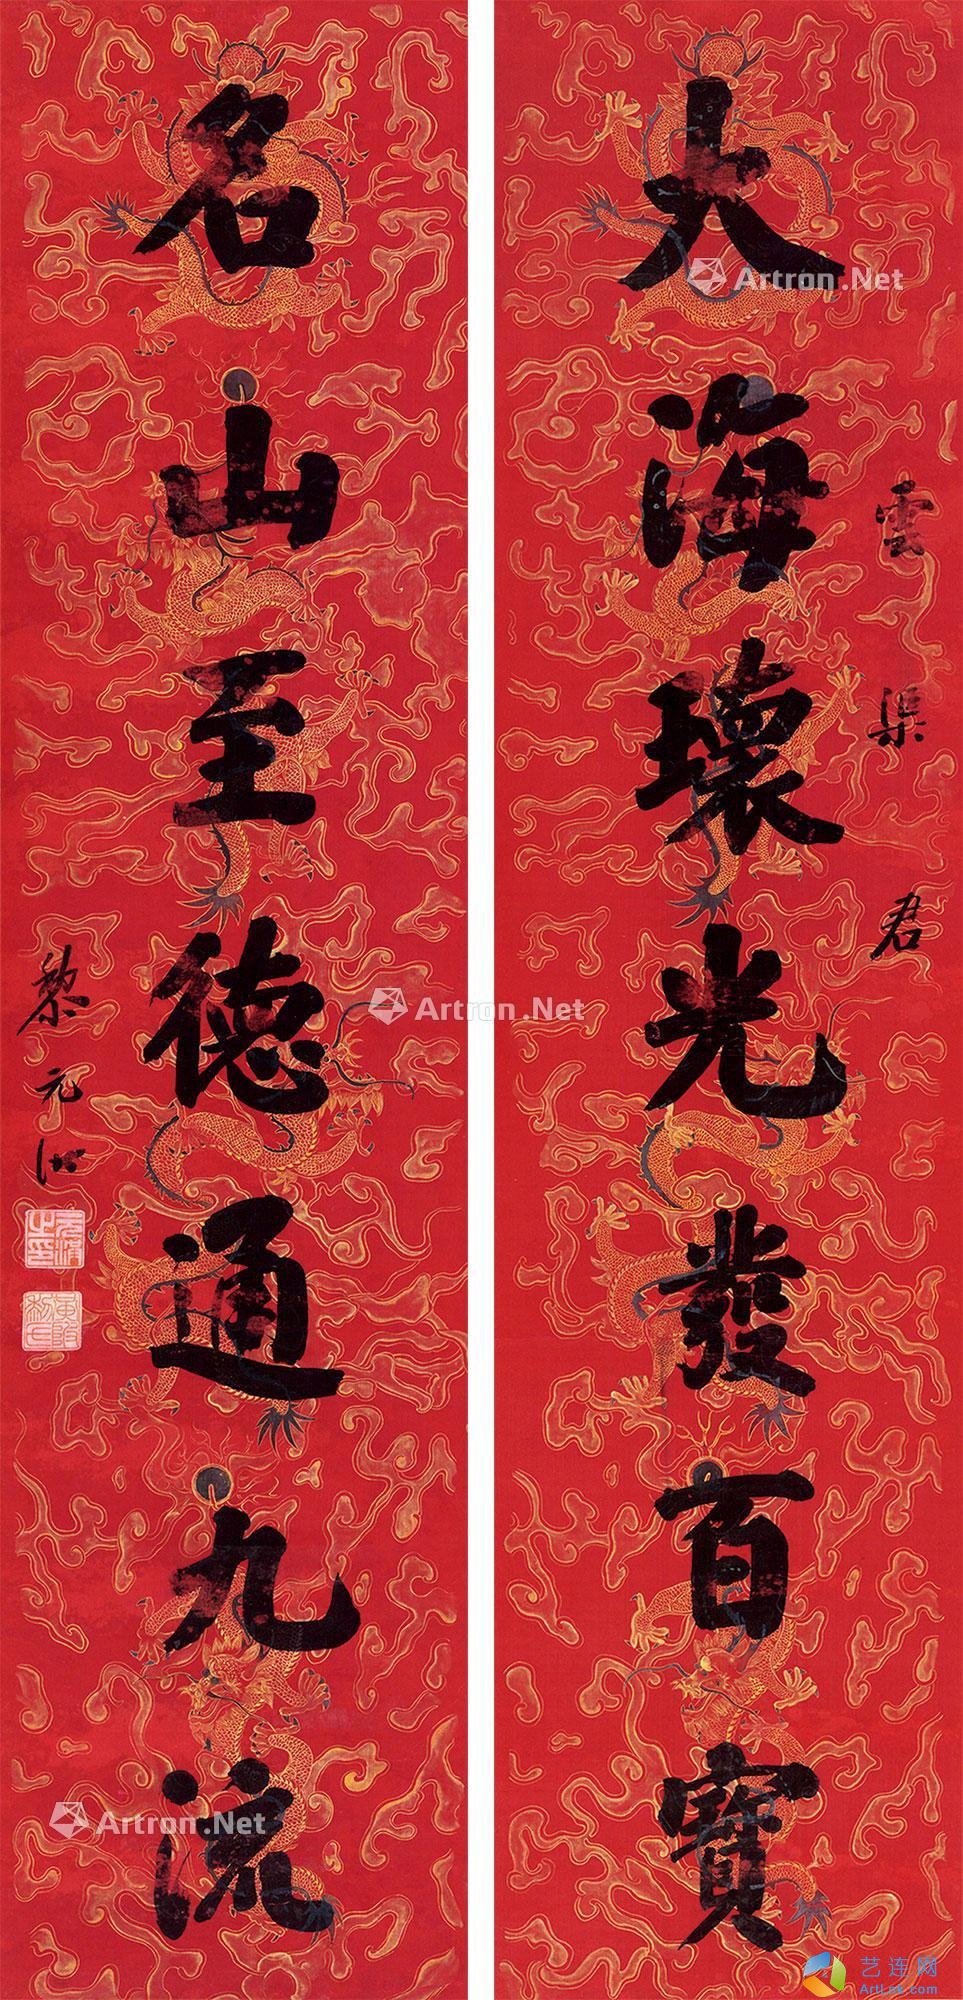 大海瓌光發百寶
雲渠君
名山至德通九流
黎元洪
Artron.Net
Artron.Net
Artron.Net
Artron.Net
Artron.Net
艺连网
ArtLnk.com